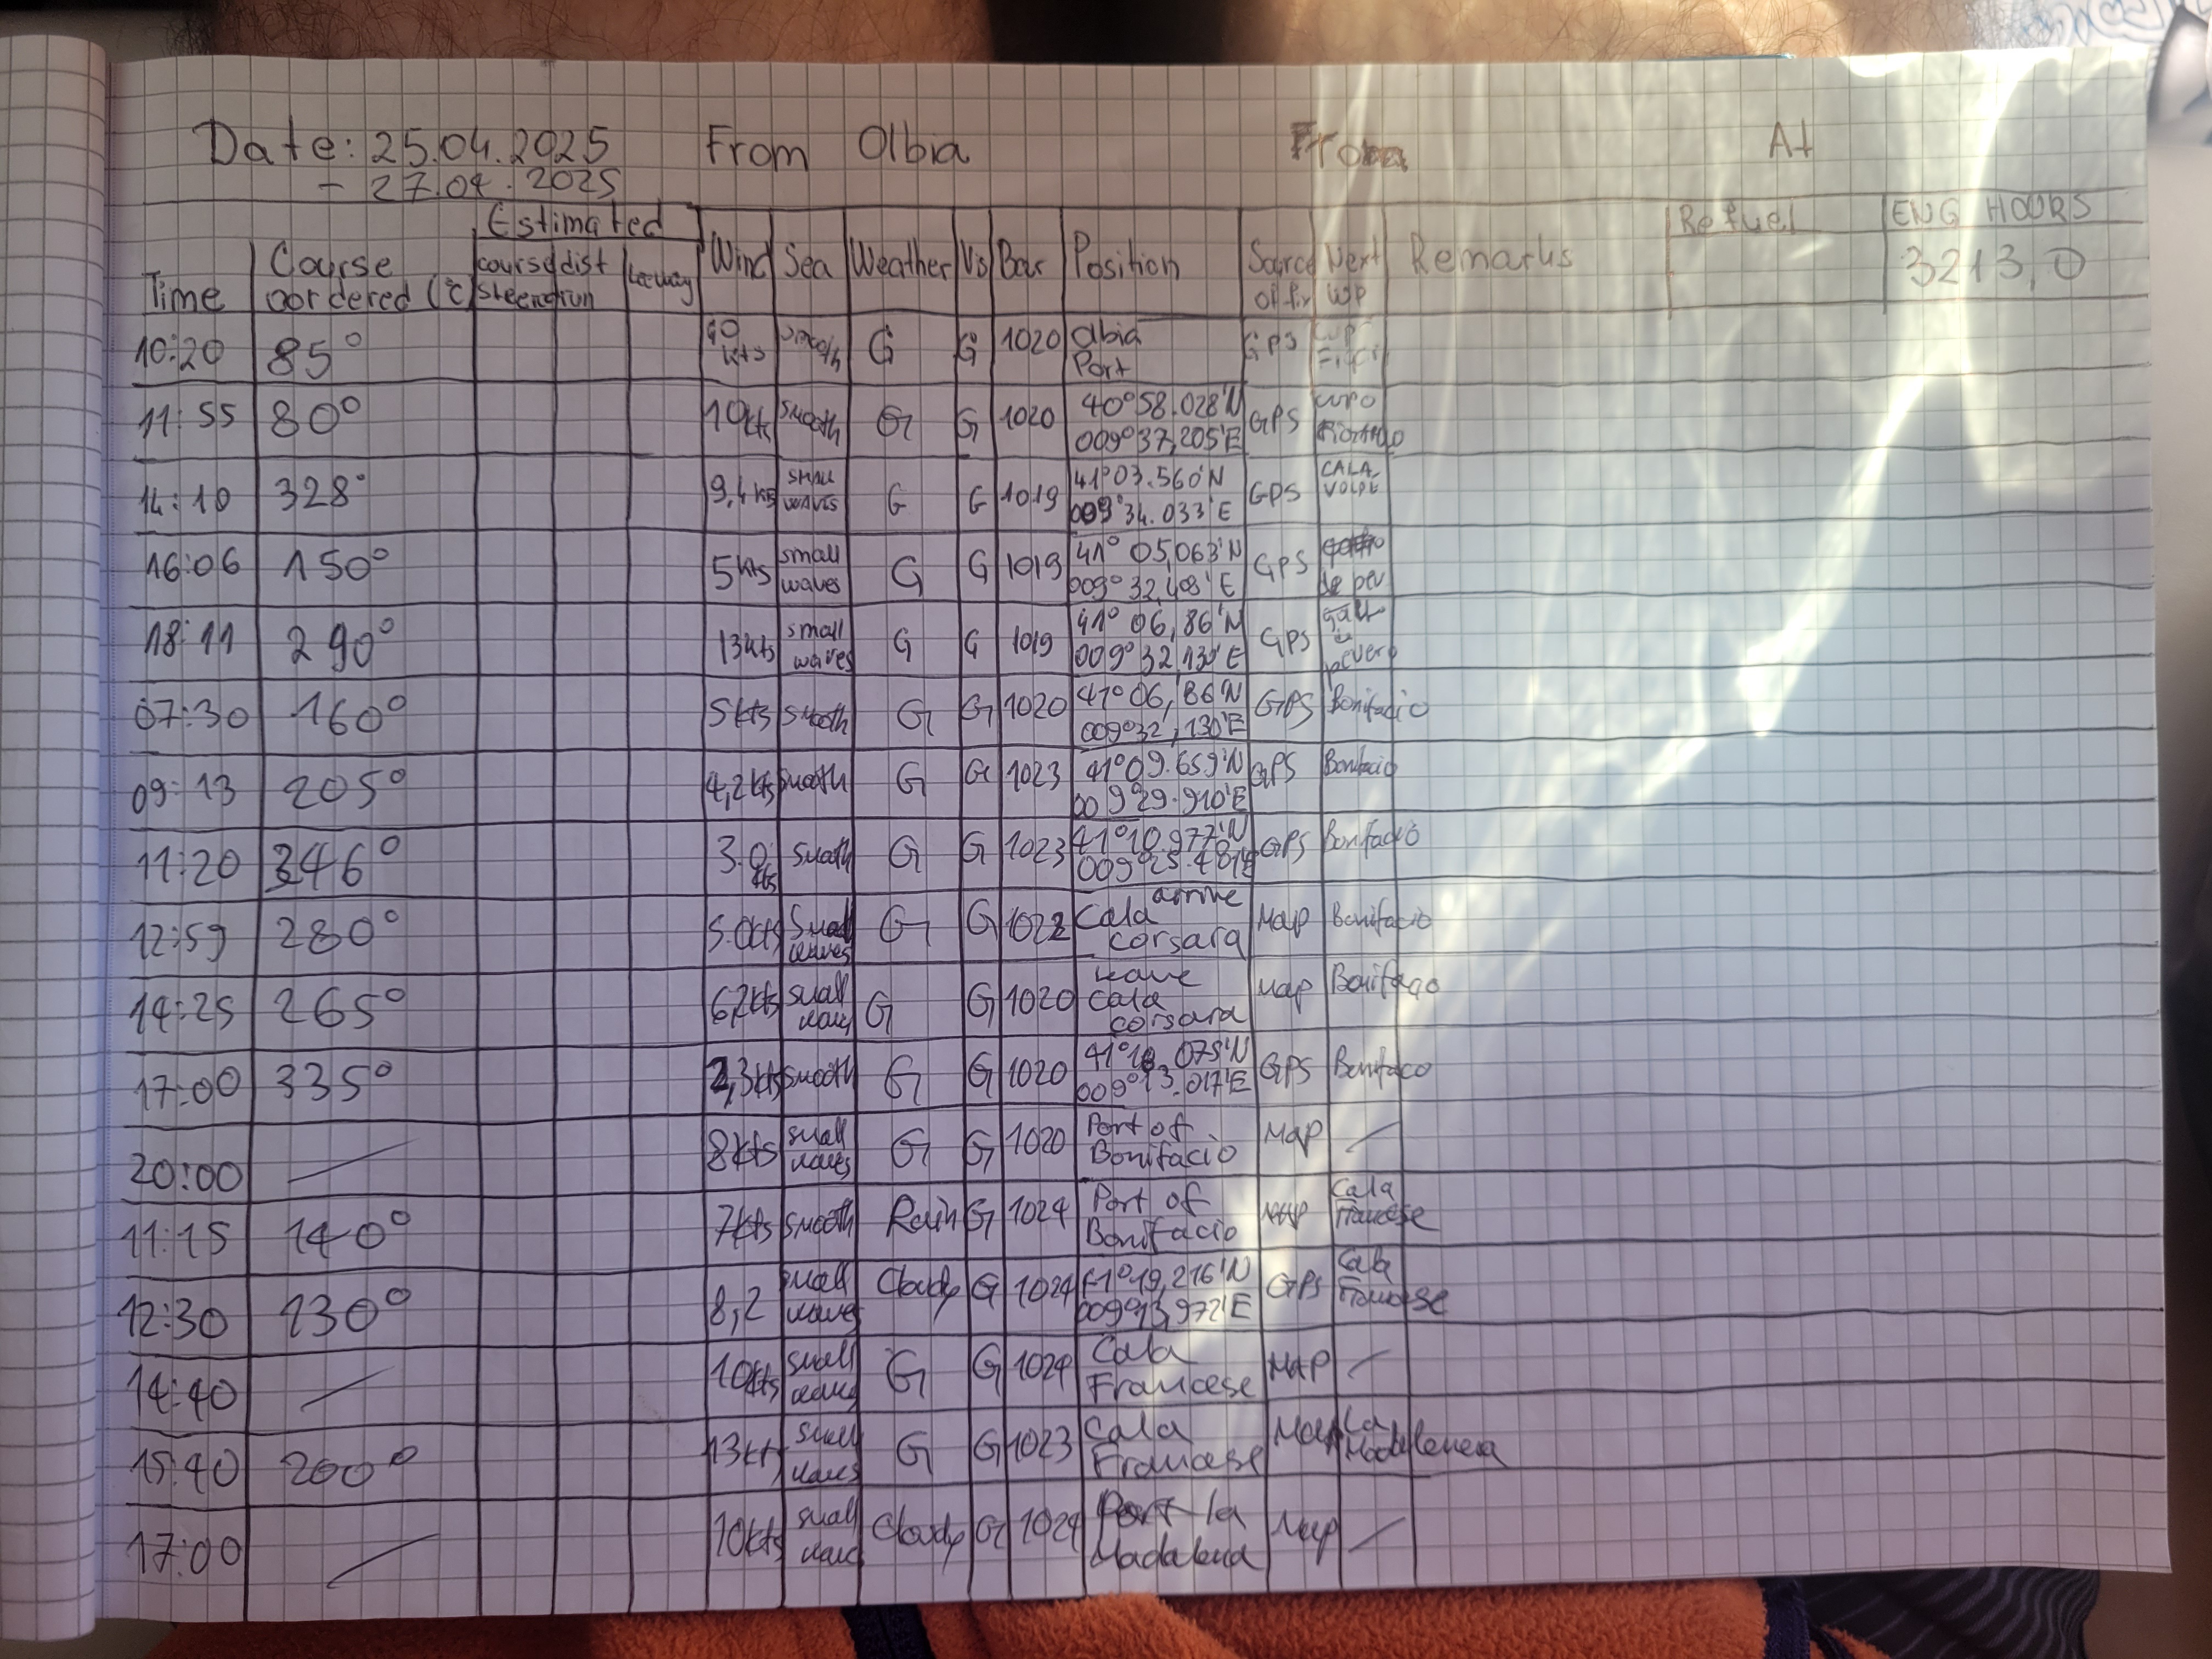 Date: 25.04.2025 From Olbia To At
- 27.04.2025
Estimated Refuel ENG HOURS
Time Course oordered (°C) course steered dist run Leeway Wind Sea Weather Vis Bar Position Source of fix Next WP Remarks 3213,0
10:20 85° 10 kts smooth G G 1020 Olbia Port GPS
11:55 80° 10kts smooth G G 1020 40°58.028'N 009°37,205'E GPS
14:10 328° 9,4 kts SMALL WAVES G G 1019 41°03.560'N 009°34.033'E GPS CALA VOLPE
16:06 150° 5kts small waves G G 1019 41° 05,063'N 009° 32,408'E GPS de pev
18:11 290° 13kts small waves G G 1019 41° 06,86'N 009° 32,130'E GPS pevero
07:30 160° 5 kts smooth G G 1020 41°06,86'N 009°32,130'E GPS Bonifacio
09:13 205° 4,2kts smooth G G 1023 41°09.659'N 009°29.910'E GPS Bonifacio
11:20 346° 3.0 kts smooth G G 1023 41°10.977'N GPS Bonifacio
12:59 280° 5.0kts Small waves G G 1022 arrive Cala corsara Map Bonifacio
14:25 265° 6,2kts small waves G G 1020 leave cala corsara Map Bonifacio
17:00 335° 2,3kts smooth G G 1020 009°13.017'E GPS Bonifaco
20:00 — 8kts small waves G G 1020 Port of Bonifacio Map —
11:15 140° 7kts smooth Rain G 1024 Port of Bonifacio Map Cala Francese
12:30 130° 8,2 small waves Cloudy G 1024 41°19,216'N 009°13,972'E GPS Cala Francese
14:40 — 10kts small waves G G 1024 Cala Francese MAP —
15:40 200° 13kts small waves G G 1023 Cala Francese Map La Madalenea
17:00 — 10kts small waves Cloudy G 1024 Port la Madalena Map —